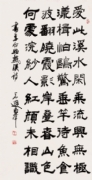 愛此溪水閑乘流興無極
漾楫怕鷗驚垂竿待魚食
波翻曉霞影岸疊春山色
何處浣紗人紅顏未相識